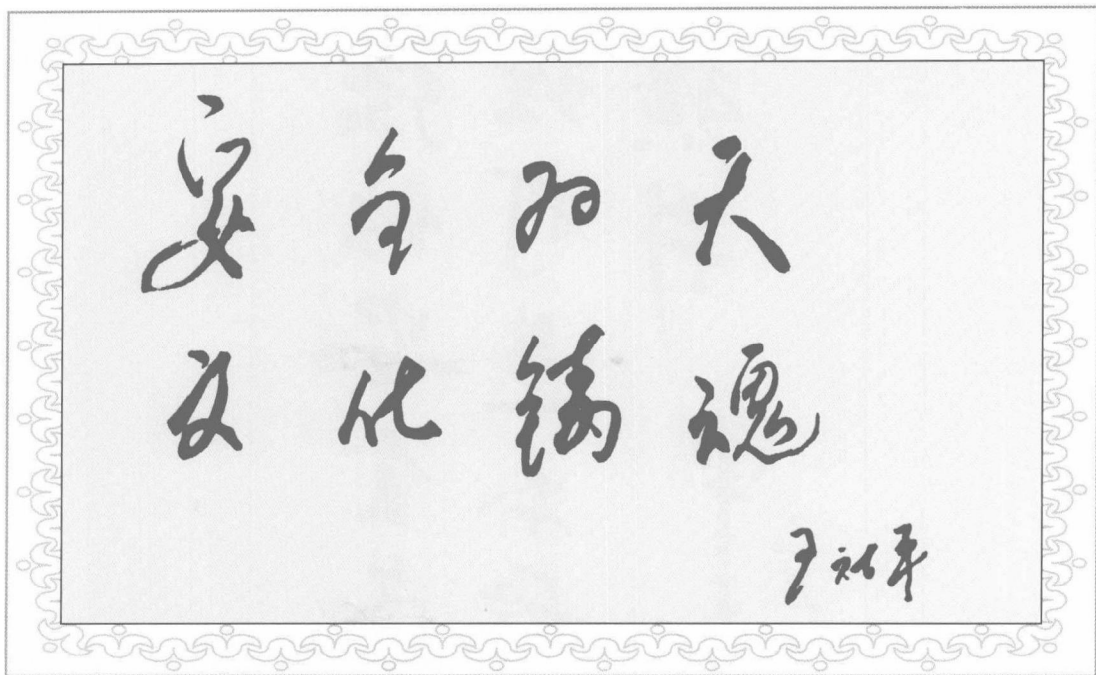 安全为天
文化铸魂
王社平